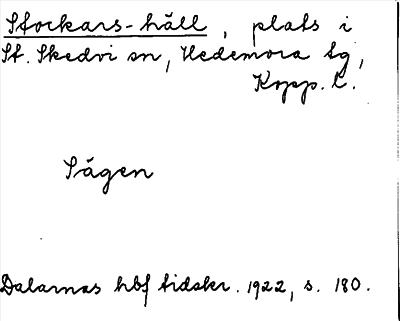 Stockars-häll, plats i
St. Skedvi sn, Hedemora tg,
Kopp. l.
Sägen
Dalarnas hbf tidskr. 1922, s. 180.